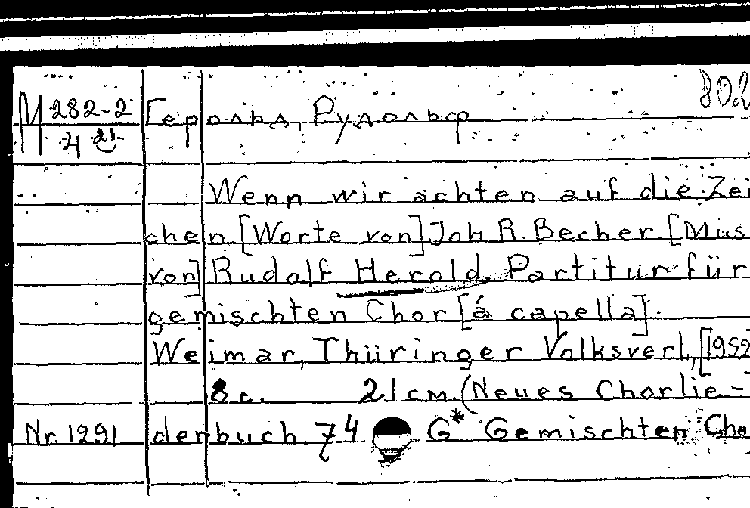 802
М 282-2 Герольд, Рудольф
4 21
Wenn wir achten auf die Zei
chen [Worte von] Joh R. Becher [Mus
von] Rudolf Herold. Partitur für
gemischten Chor [á capella].
Weimar, Thüringer Volksverl, [1952
8 с. 21 см (Neues Chorlie-
Nr. 1291 derbuch 74 G* Gemischten Cho